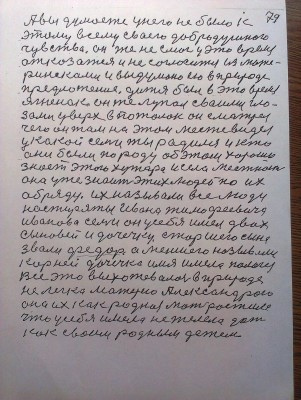 79
А вы думаете у него не было к
этому всему своего добродушного
чувства, он же не смог в это время
отказатся и не согласится из мате-
ринскаи и выдуманою в природе
предложения, дитя был в это время
ягненак, он же лупал своими гла-
зами уверх в потолок он сматрел
чего он там на этом месте видел
у какой семи ты радился и кто
они были породу об этом хорошо
знает этого хутара и села местная
она уже знаит этих людей по их
обряду. их называли все люду
Ивана Тимофеевича
Иванова семи он у себя имел двох
сыновей и дочичку старшего сына
звали Федор а меншего называли
Корней дочичка имя имела Пологея
Все это выхотевалось в природе
не легка матушю Александрою
она их как родная мат ростила
что у себя имела не жилела дат
как своим родным детем